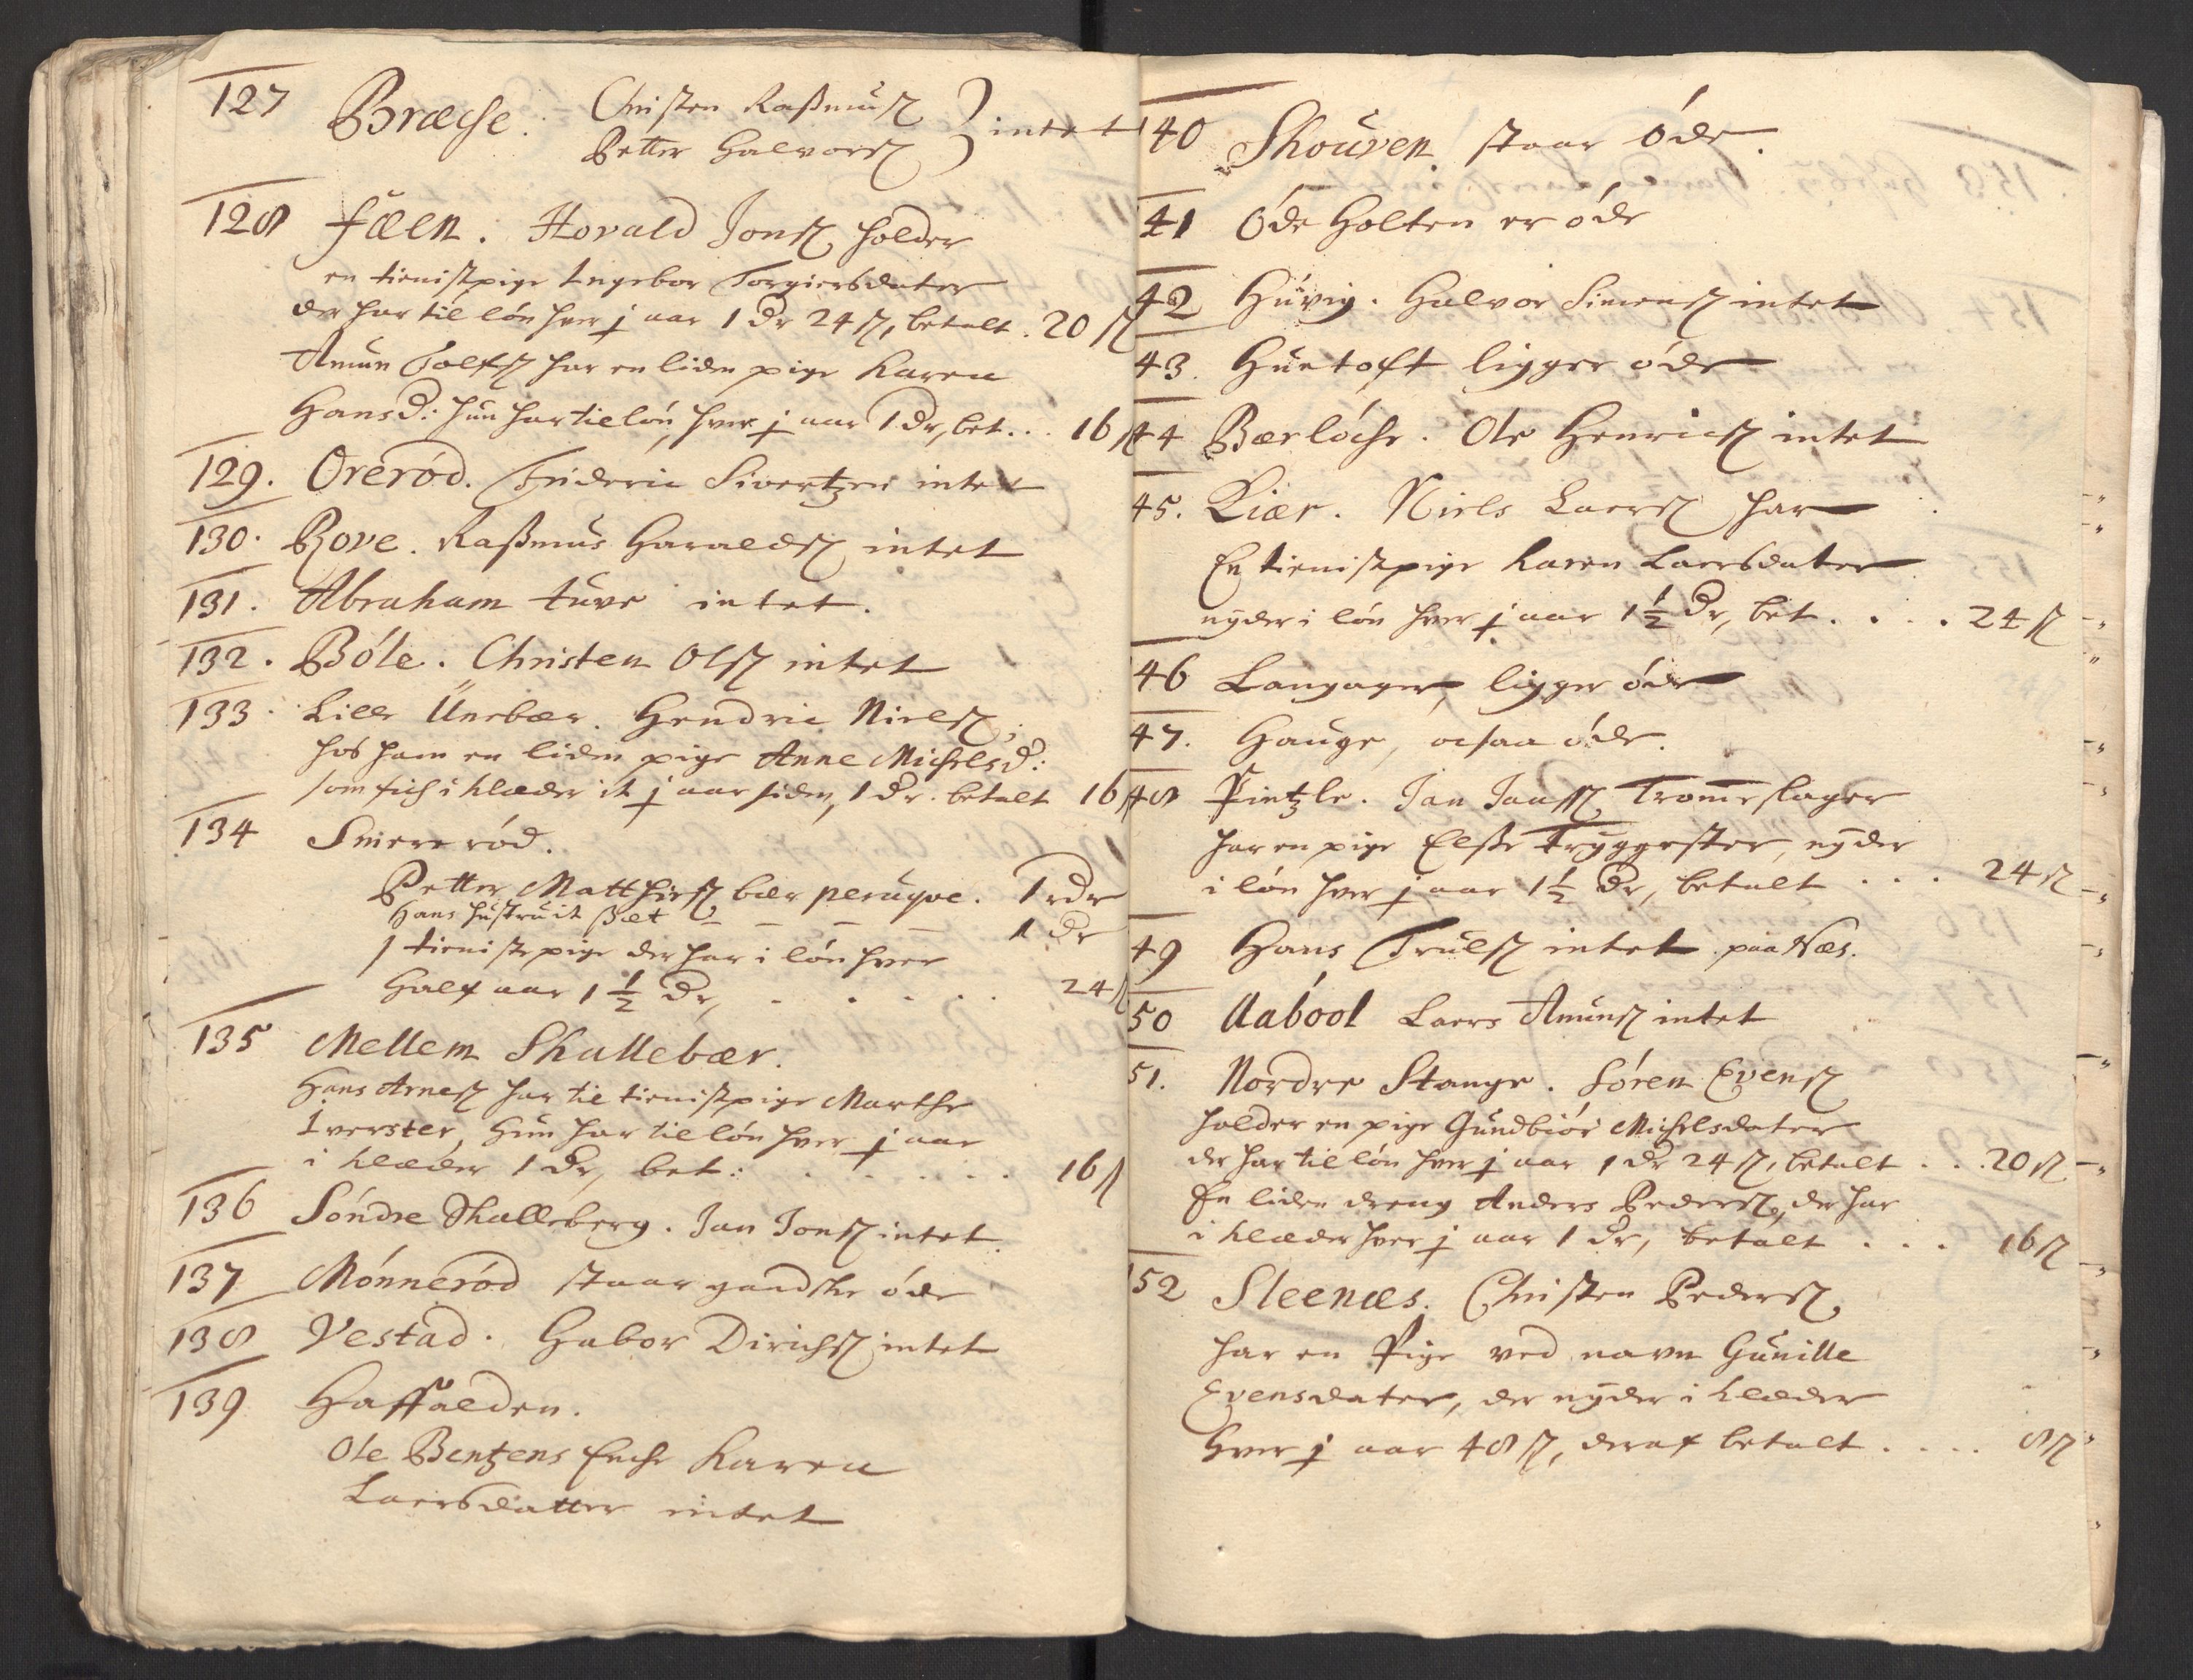 127 Bræche. Christen Rasmusß
Petter Halvorsß } intet
128 Fæen. Hovald Jonsß holder
en tienistpige Ingebor Torgiersdater
der har til løn hver ½ aar 1 Dr 24 ß, betalt . 20 ß
Amun Tolfsß har en liden pige Karen
Hansd: hun har til løn, hver ½ aar 1 Dr, bet . . . 16 ß
129. Orerød. Frideric Sivertzen intet
130. Rove. Raßmus Haraldsß intet
131. Abraham tuve intet.
132. Bøle. Christen Olsß intet
133. Lille Unebær. Hendric Nielsß,
hos ham en liden pige Anne Michelsd:
som fich i klæder it ½ aar siden, 1 Dr. betalt 16 ß
134 Smererød.
Petter Matthisß bær peruqve. 1 rdr
Hans hustru it set — — — 1 Dr
1 tieniste pige der har i løn hver
Half aar 1½ Dr, . . . . . 24 ß
135 Mellem Skallebær.
Hans Arnesß har til tienistpige Marthe
Iverster, hun har til løn hver ½ aar
i klæder 1 Dr, bet: . . . . . . 16 ß
136 Søndre Skalleberg. Jan Jonsß intet.
137 Mønnerød staar gandske øde
138 Vestad. Gabor Dirichsß intet
139 Haffalden.
Ole Bentzens Enche Karen
Laersdatter intet
140 Skouven staar øde.
41 Øde Holten er øde
42 Huvig. Halvor Simensß intet
43. Huetoft ligger øde
44 Bærløche. Ole Henricsß intet
45. Kiær. Niels Laersß har
En tienistpige Karen Laersdater
nyder i løn hver ½ aar 1½ Dr, bet . . . . 24 ß
46 Langager, ligger øde
47. Hauge, ocsaa øde.
48 Pintzle. Jan Jansß Trommeslager
har en pige Elße Tryggester, nyder
i løn hver ½ aar 1½ Dr, betalt . . . 24 ß
49 Hans Trulsß intet paa Næs.
50 Aabøol Laers Amunsß intet
51. Nordre Stange. Søren Evensß
holder en pige Gundbiør Michelsdater
der har til løn hver ½ aar 1 Dr 24 ß, betalt . . . 20 ß
En liden dreng Anders Pedersß, der har
i klæder hver ½ aar 1 Dr, betalt . . . 16 ß
152 Sleenæs. Christen Pedersß
har en Pige ved navn Gunille
Evensdater, der nyder i klæder
Hver ½ aar 48 ß, deraf betalt . . . . 8 ß